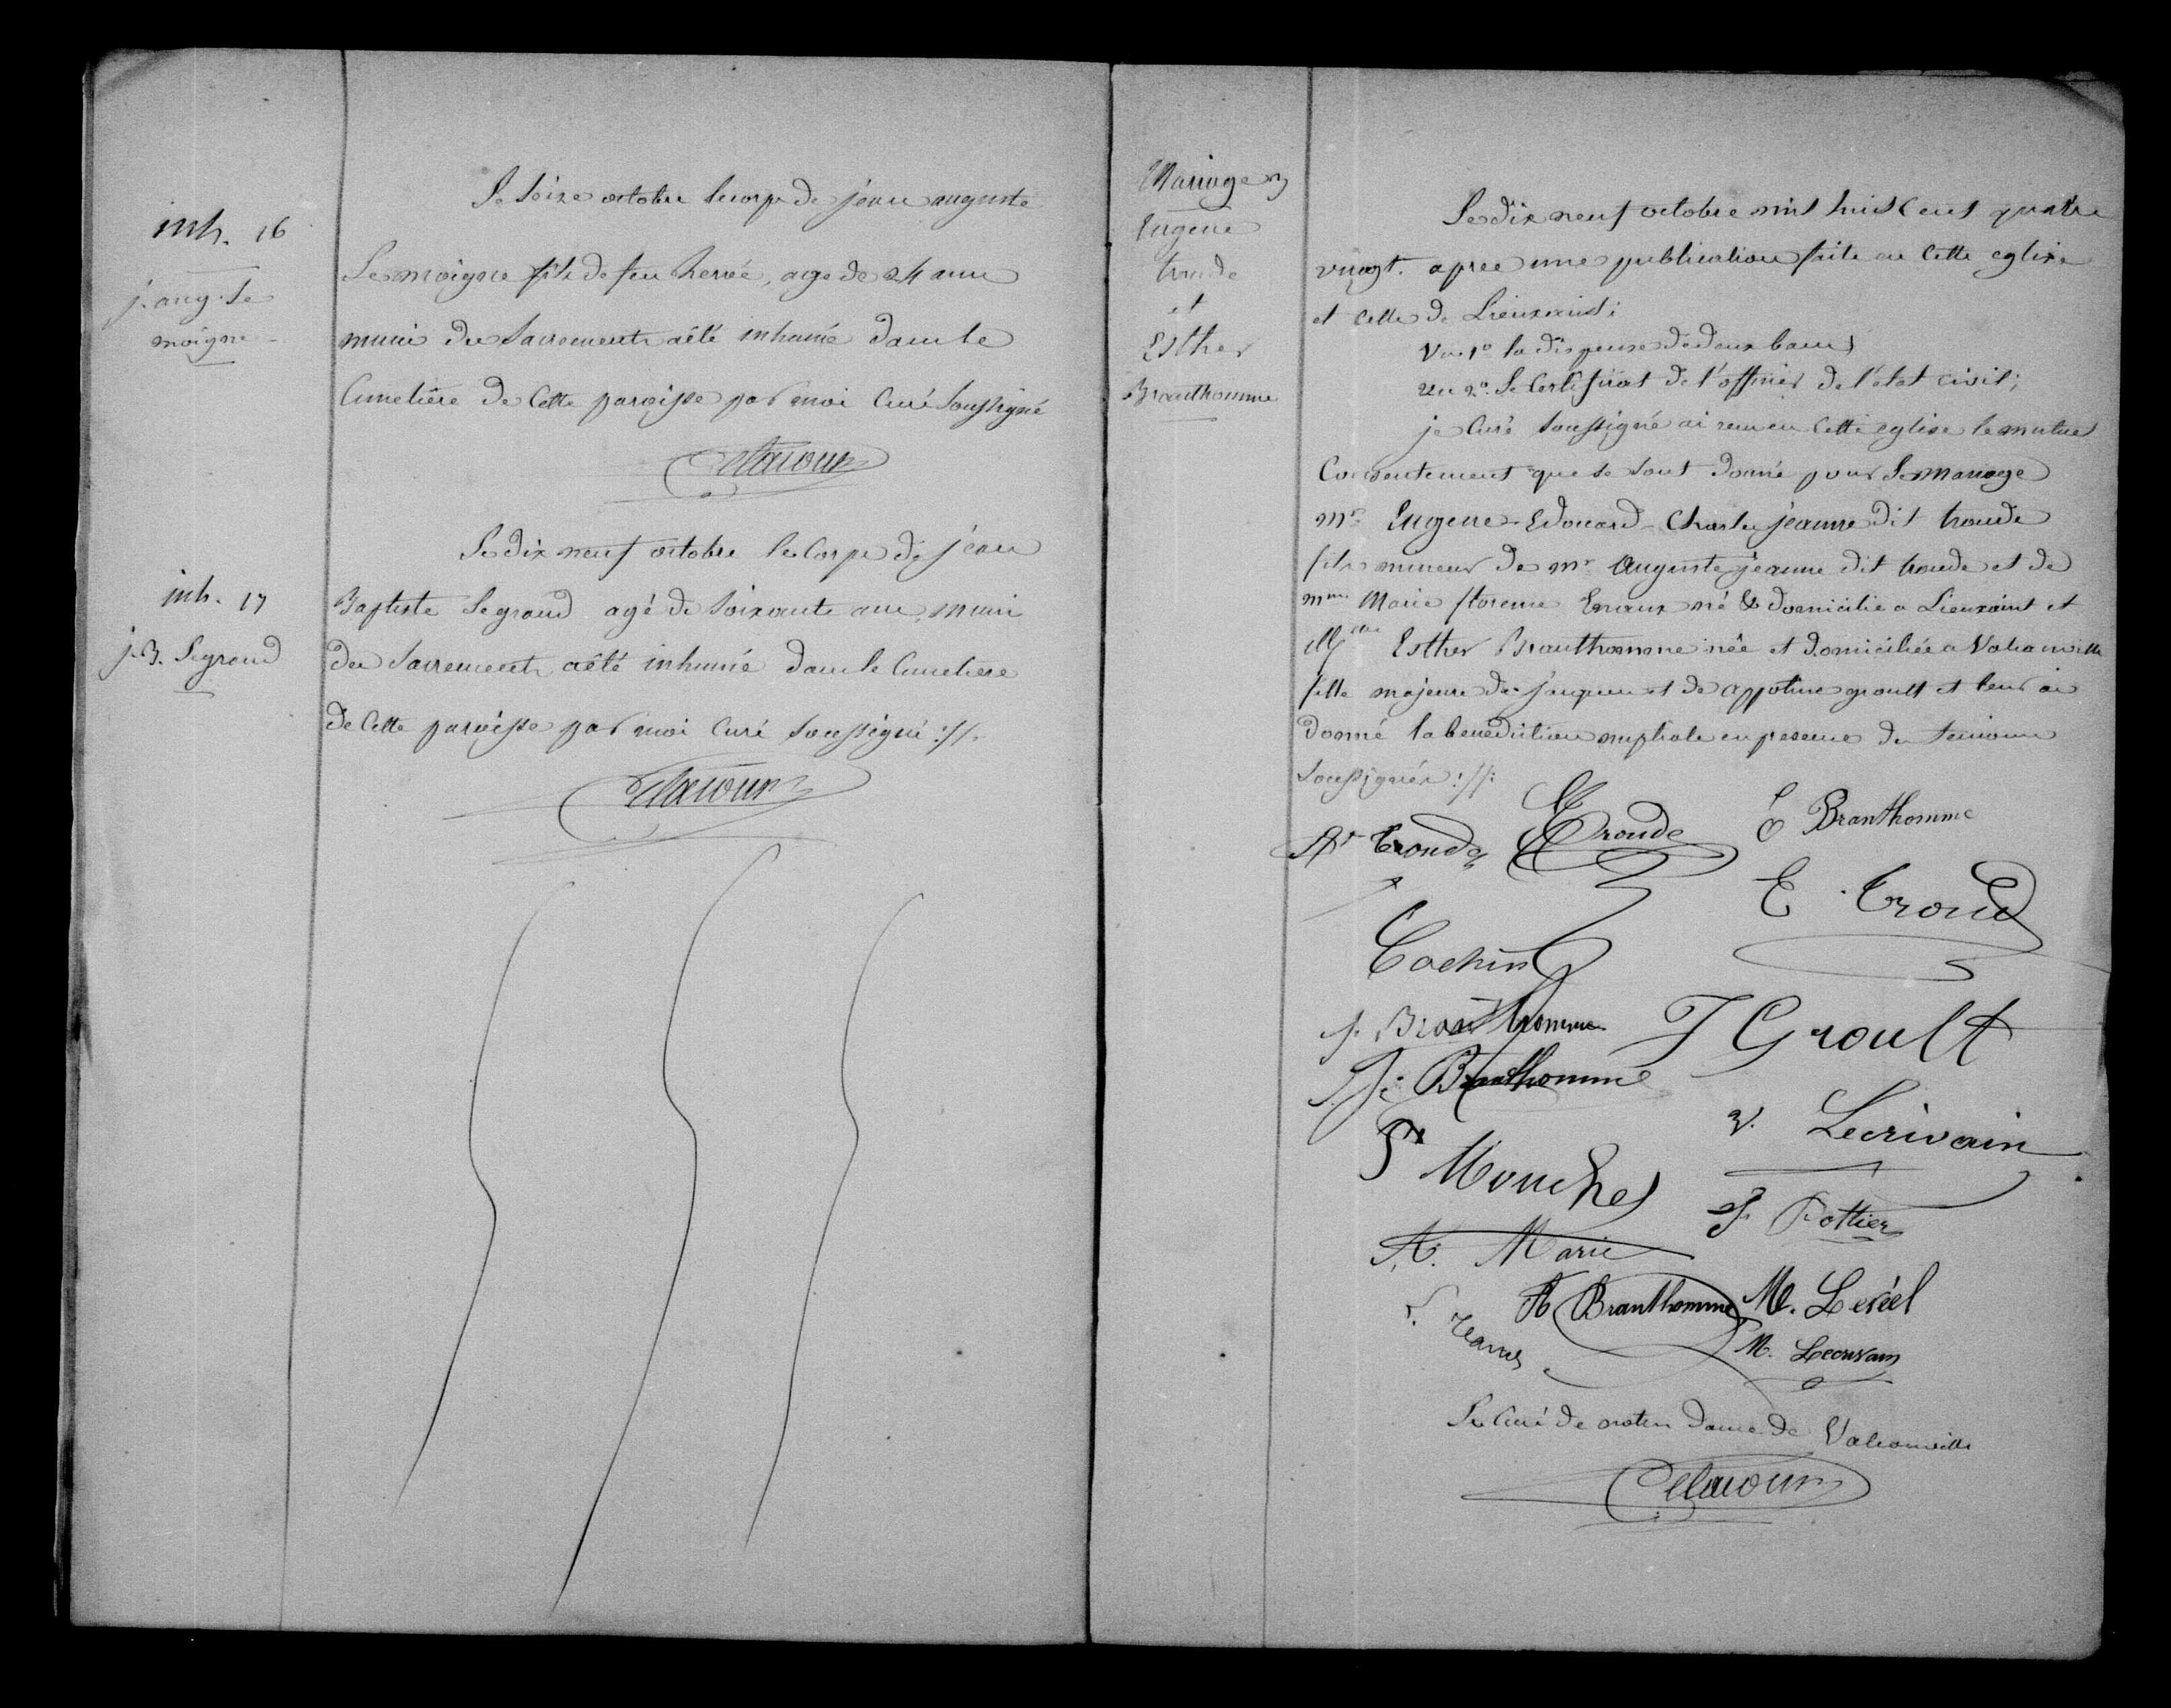 inh. 16
j. aug. Le
moigne
Le seize octobre le corps de jean auguste
Lemoigne fils de feu hervé, age de 24 ans
muni des Sacrements a été inhumé dans le
Cimetière de Cette paroisse par moi Curé Soussigné
Delacour
inh. 17
j. B. Legrand
Le dix neuf octobre le Corps de jean
Baptiste Legrand agé de soixante ans, muni
des Sacrements a été inhumé dans le Cimetiere
de Cette paroisse par moi Curé Soussigné ://.
Delacour
Mariage 3
Eugene
troude
et
Esther
Branthomme
Le dix neuf octobre mil huit Cent quatre
vingt. apres une publication faite en Cette eglise
et Celle de Lieusaint;
Vu 1° la dispense de deux bans;
Vu 2°. Le Certificat de l'officier de l'état civil;
je Curé Soussigné ai recu en Cette eglise le mutuel
Consentement que se sont donné pour le Mariage
mr Eugene Edouard Charles jeanne dit troude
fils mineur de mr Auguste jeanne dit troude et de
mme Marie florence né & domicilié a Lieusaint et
Mlle Esther Branthomme née et domiciliée a Valcanville
fille majeure de jacques et de appoline groult et leur ai
donné la bénédiction nuptiale en presence des temoins
Soussignés ://:
Troude
E Troude
E Branthomme
E. Troude
Cachin
f. Branthomme
J Groult
Branthomme
V. Lecrivain
Mouchel
f. Pottier
A. Marie
A Branthomme
M. Leréel
M. Lecrivain
Le Curé de notre Dame de Valcanville
Delacour